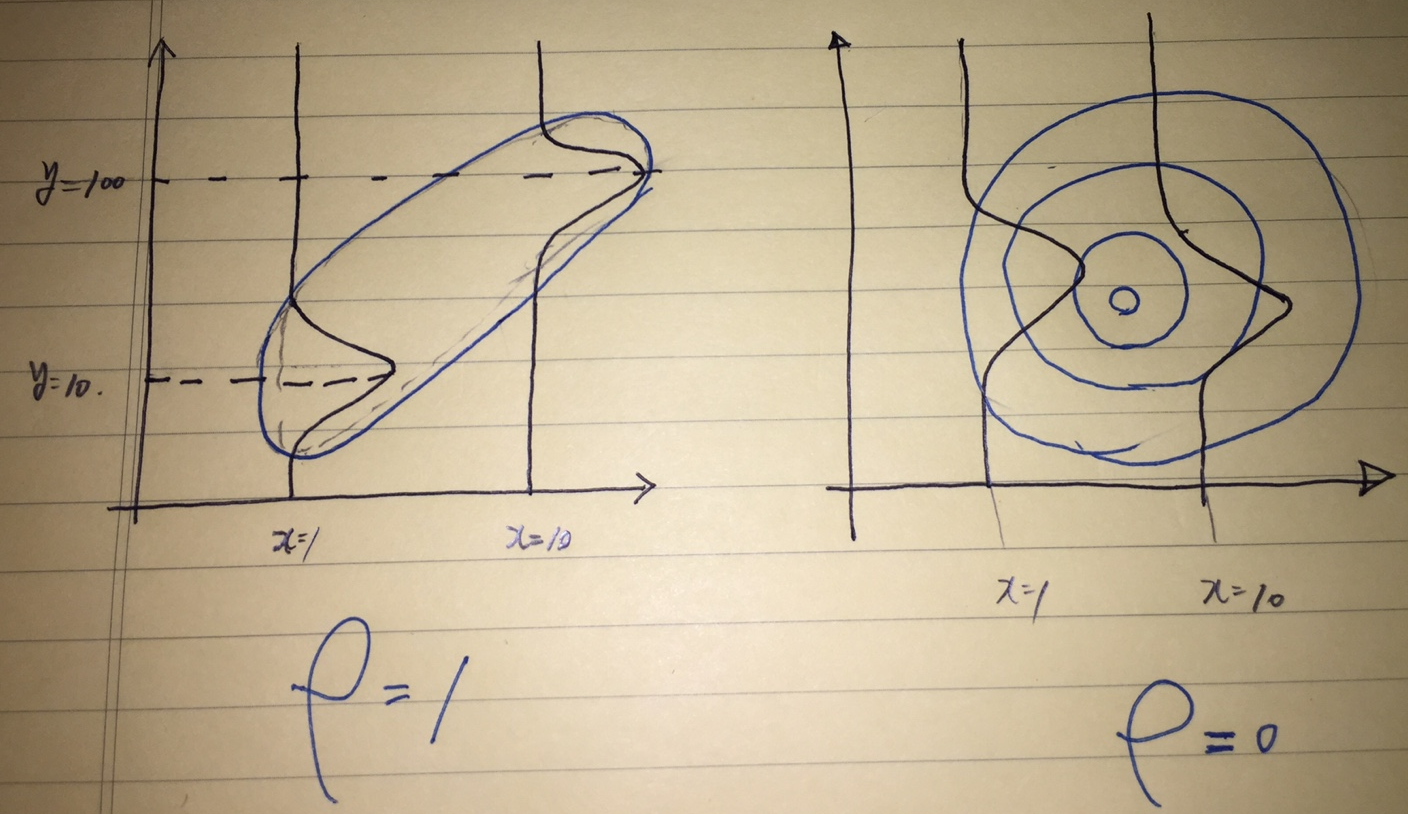 y=100
y=10.
x=1
x=10
x=1
x=10
ρ=1
ρ=0